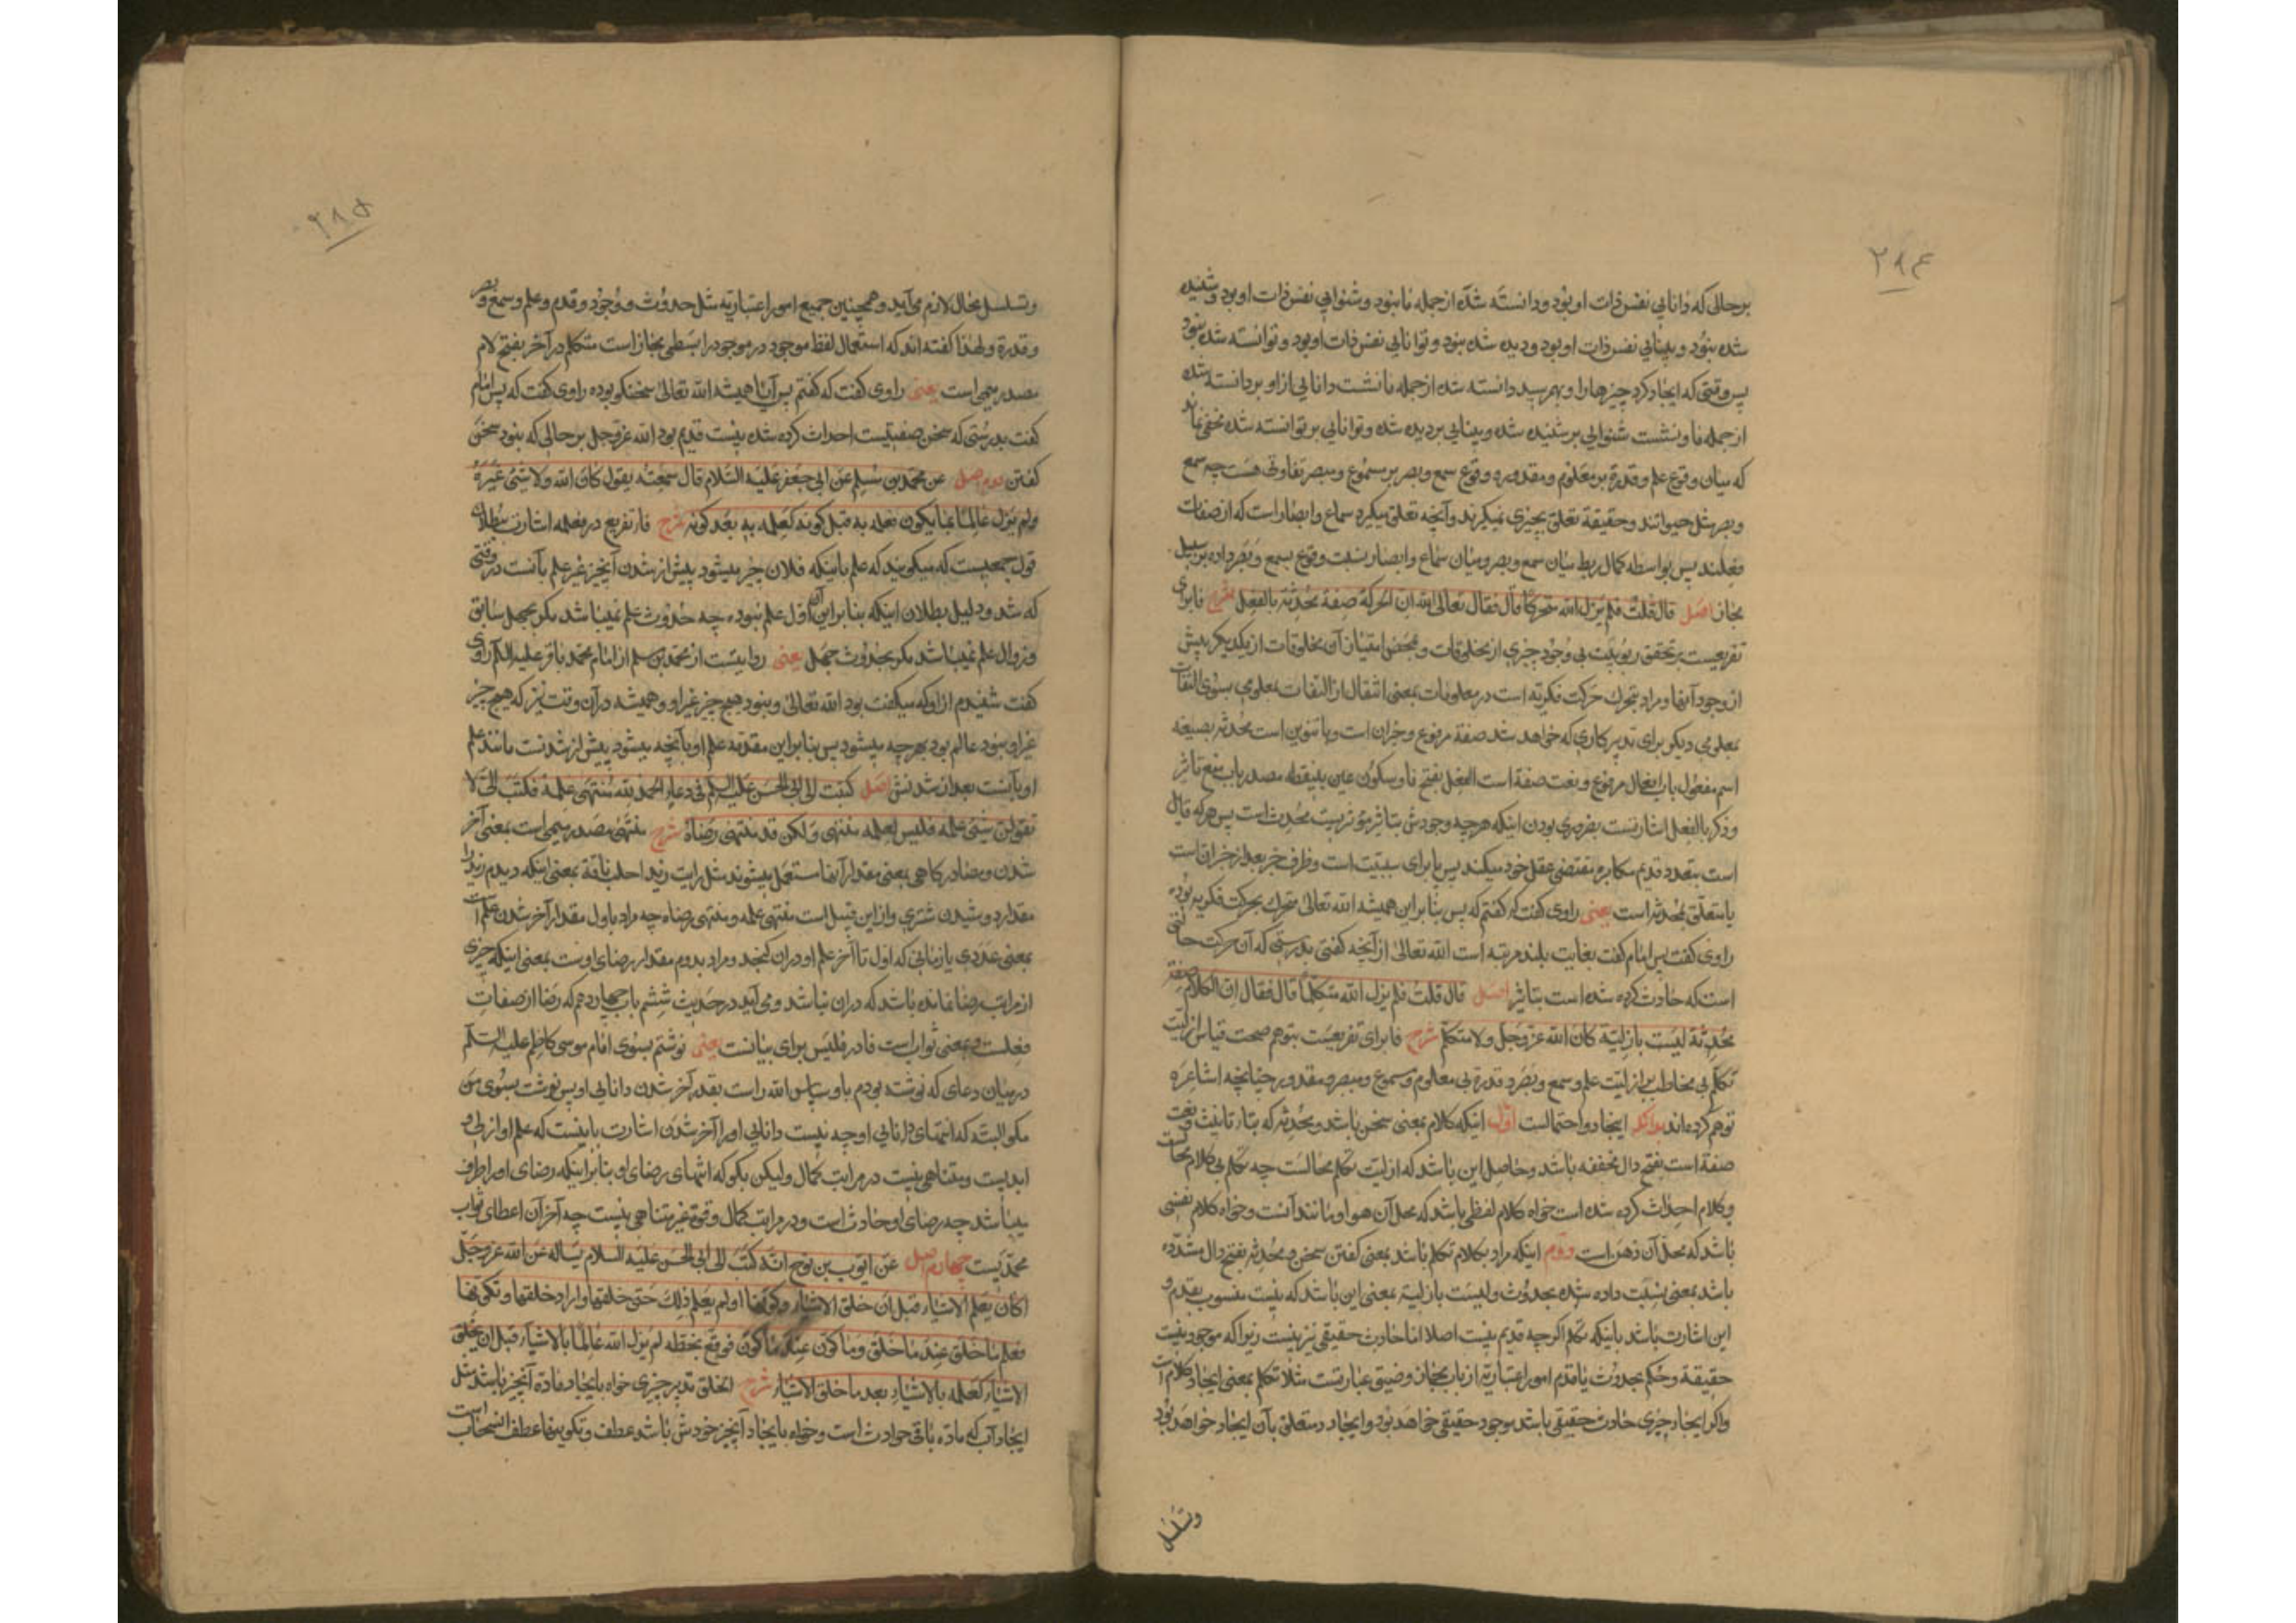 ۲۸۴
برحالی که دانایی نفس ذات او بود و دانسته شده از جمله ما نبود و شنوایی نفس ذات او بود و شنیده
شده نبود و بینایی نفس ذات او بود و دیده شده نبود و توانایی نفس ذات او بود و توانسته شده نبود
پس وقتی که ایجاد کرد چیزها را و بهم رسید دانسته شده از جمله ما نشست دانایی از او بر دانسته شده
از جمله ما و نشست شنوایی بر شنیده شده و بینایی بر دیده شده و توانایی بر توانسته شده مخفی نماند
که میان وقوع علم و قدرة بر معلوم و مقدور و وقوع سمع و بصر بر مسموع و مبصر تفاوتی هست چه سمع
و بصر مثل حیوانند و حقیقة تعلق بچیزی نمیگیرند و آنچه تعلق میگیرد سماع و ابصار است که از صفات
فعلند پس بواسطه کمال ربط میان سمع و بصر و میان سماع و ابصار نسبت وقوع بسمع و بصر داده بر سبیل
مجاز اصل قال قلت فلم یزل الله متحرکا قال فقال تعالی الله ان الحرکة صفة محدثة بالفعل شرح فا برای
تفریعیست بر تحقق ربوبیت بی وجود چیزی از مخلوقات و بمحض امتیاز آن مخلوقات از یکدیکر پیش
از وجود آنها و مراد بتحرک حرکت فکریه است در معلومات بمعنی انتقال از التفات بمعلومی بسوی التفات
بمعلومی دیکر برای تدبیر کاری که خواهد شد صفة مرفوع و خبر ان است و با تنوین است محدثه بصیغه
اسم مفعول باب افعال مرفوع و نعت صفة است الفعل بفتح فا و سکون عین بینقطه مصدر باب منع تاثیر
و ذکر بالفعل اشارتست بضروری بودن اینکه هرچه وجودش بتاثیر مؤثریست محدث است پس هرکه قایل
است بتعدد قدیم مکابره مقتضی عقل خود میکند پس با برای سببیت است و ظرف خبر بعد از خبر ان است
یا متعلق بمحدثه است یعنی راوی گفت که گفتم که پس بنابراین همیشه الله تعالی متحرک بحرکت فکریه بوده
راوی گفت پس امام گفت بغایت بلند مرتبه است الله تعالی از آنچه کفتی بدرستی که آن حرکت حالتی
است که حادث کرده شده است بتاثیر اصل قال قلت فلم یزل الله متکلما قال فقال ان الکلام صفة
محدثة لیست بازلیة کان الله عزوجل ولا متکلم شرح فا برای تفریعیست بتوهم صحت قیاس ازلیت
تکلم بی مخاطب بر ازلیت علم و سمع و بصر و قدرة بی معلوم و مسموع و مبصر و مقدور چنانچه اشاعره
توهم کرده‌اند بدانکه اینجا دو احتمالست اول اینکه کلام بمعنی سخن باشد و محدثه که بتاء تانیث و نعت
صفة است بفتح دال مخففه باشد و حاصل این باشد که ازلیت تکلم محالست چه تکلم بی کلام محالست
و کلام احداث کرده شده است خواه کلام لفظی باشد که محل آن هوا و مانند آنست و خواه کلام نفسی
باشد که محل آن ذهن است دوم اینکه مراد بکلام تکلم باشد بمعنی کفتن سخن و محدثه بفتح دال مشدده
باشد بمعنی نسبت داده شده بحدوث و لیست بازلیة بمعنی این باشد که نیست منسوب بقدم و
این اشارت باشد باینکه تکلم اکرچه قدیم نیست اصلا اما حادث حقیقی نیز نیست زیرا که موجود نیست
حقیقة و حکم بحدوث یا قدم امور اعتباریه از باب مجاز و ضیق عبارتست مثلا تکلم بمعنی ایجاد کلام است
و اکر ایجاد چیزی حادث حقیقی باشد موجود حقیقی خواهد بود و ایجاد دیگر متعلق بآن ایجاد خواهد بود
وتسلسل
۲۸۵
وتسلسل محال لازم می‌آید و همچنین جمیع امور اعتباریه مثل حدوث و وجود و قدم و علم و سمع و بصر
و قدرة و لهذا کفته‌اند که استعمال لفظ موجود در موجود رابطی مجاز است متکلم در آخر بفتح لام
مصدر میمی است یعنی راوی کفت که کفتم پس آیا همیشه الله تعالی سخنکو بوده راوی کفت که پس امام
کفت بدرستی که سخن صفتیست احداث کرده شده نیست قدیم بود الله عزوجل بر حالی که نبود سخن
کفتن دوم اصل عن محمد بن مسلم عن ابی جعفر علیه السلام قال سمعته یقول کان الله ولا شیئ غیره
ولم یزل عالما بما یکون فعلمه به قبل کونه کعلمه به بعد کونه شرح فا تفریع در فعلمه اشارت ببطلان
قول جمعیست که میکویند که علم باینکه فلان چیز میشود پیش از شدن آنچیز غیر علم بآنست در وقتی
که شد و دلیل بطلان اینکه بنا براین آن اول علم نبوده چه حدوث علم نمیباشد مکر بجهل سابق
و زوال علم نمیباشد مکر بحدوث جهل یعنی روایتست از محمد بن مسلم از امام محمد باقر علیه السلام راوی
کفت شنیدم از او که میکفت بود الله تعالی و نبود هیچ چیز غیر او و همیشه در آن وقت نیز که هیچ چیز
غیر او نبود عالم بود بهرچه میشود پس بنا براین مقدمه علم او بآنچه میشود پیش از شدنست مانند علم
او بآنست بعد از شدنش اصل کتبت الی ابی الحسن علیه السلام فی دعاء الحمد لله منتهی علمه فکتب الی لا
تقولن منتهی علمه فلیس لعلمه منتهی ولکن قد منتهی رضاه شرح منتهی مصدر میمی است بمعنی آخر
شدن و مصادر کاهی بمعنی مقدار آنها مستعمل میشوند مثل رایت زیدا حلب ناقة بمعنی اینکه دیدم زید را
مقدار دوشیدن شتری و از این قبیل است منتهی علمه و منتهی رضاه چه مراد باول مقدار آخر شدن علم است
بمعنی عددی یا زمانی که اول تا آخر علم او دران کنجد و مراد بدوم مقدار رضای اوست بمعنی اینکه چیزی
از مراتب رضا نمانده باشد که دران نباشد و می‌آید در حدیث ششم باب چهاردهم که رضا از صفات
فعلست و بمعنی ثوابست فا در فلیس برای بیانست یعنی نوشتم بسوی امام موسی کاظم علیه السلام
در میان دعای که نوشته بودم باو سپاس الله راست بقدر آخر شدن دانایی او پس نوشت بسوی من
مکو البته که انتهای دانایی او چه نیست دانایی او را آخر شدن اشارت باینست که علم او ازلی و
ابدیست و متناهی نیست در مراتب کمال ولیکن بکو که انتهای رضای او بنا براینکه رضای او را طرف
میباشد چه رضای او حادث است و در مراتب کمال و قوة غیر متناهی نیست چه آخر آن اعطای ثواب
محمدیست چهارم اصل عن ایوب بن نوح انه کتب الی ابی الحسن علیه السلام یساله عن الله عزوجل
اکان یعلم الاشیاء قبل ان خلق الاشیاء وکونها او لم یعلم ذلک حتی خلقها واراد خلقها وتکوینها
فعلم ما خلق عند ما خلق وما کون عند ما کون فوقع بخطه لم یزل الله عالما بالاشیاء قبل ان یخلق
الاشیاء کعلمه بالاشیاء بعد ما خلق الاشیاء شرح الخلق تدبیر چیزی خواه بایجاد ماده آنچیز باشد مثل
ایجاد آب که ماده باقی حوادث است و خواه بایجاد آنچیز خودش باشد عطف و تکوینها عطف انسحاب است